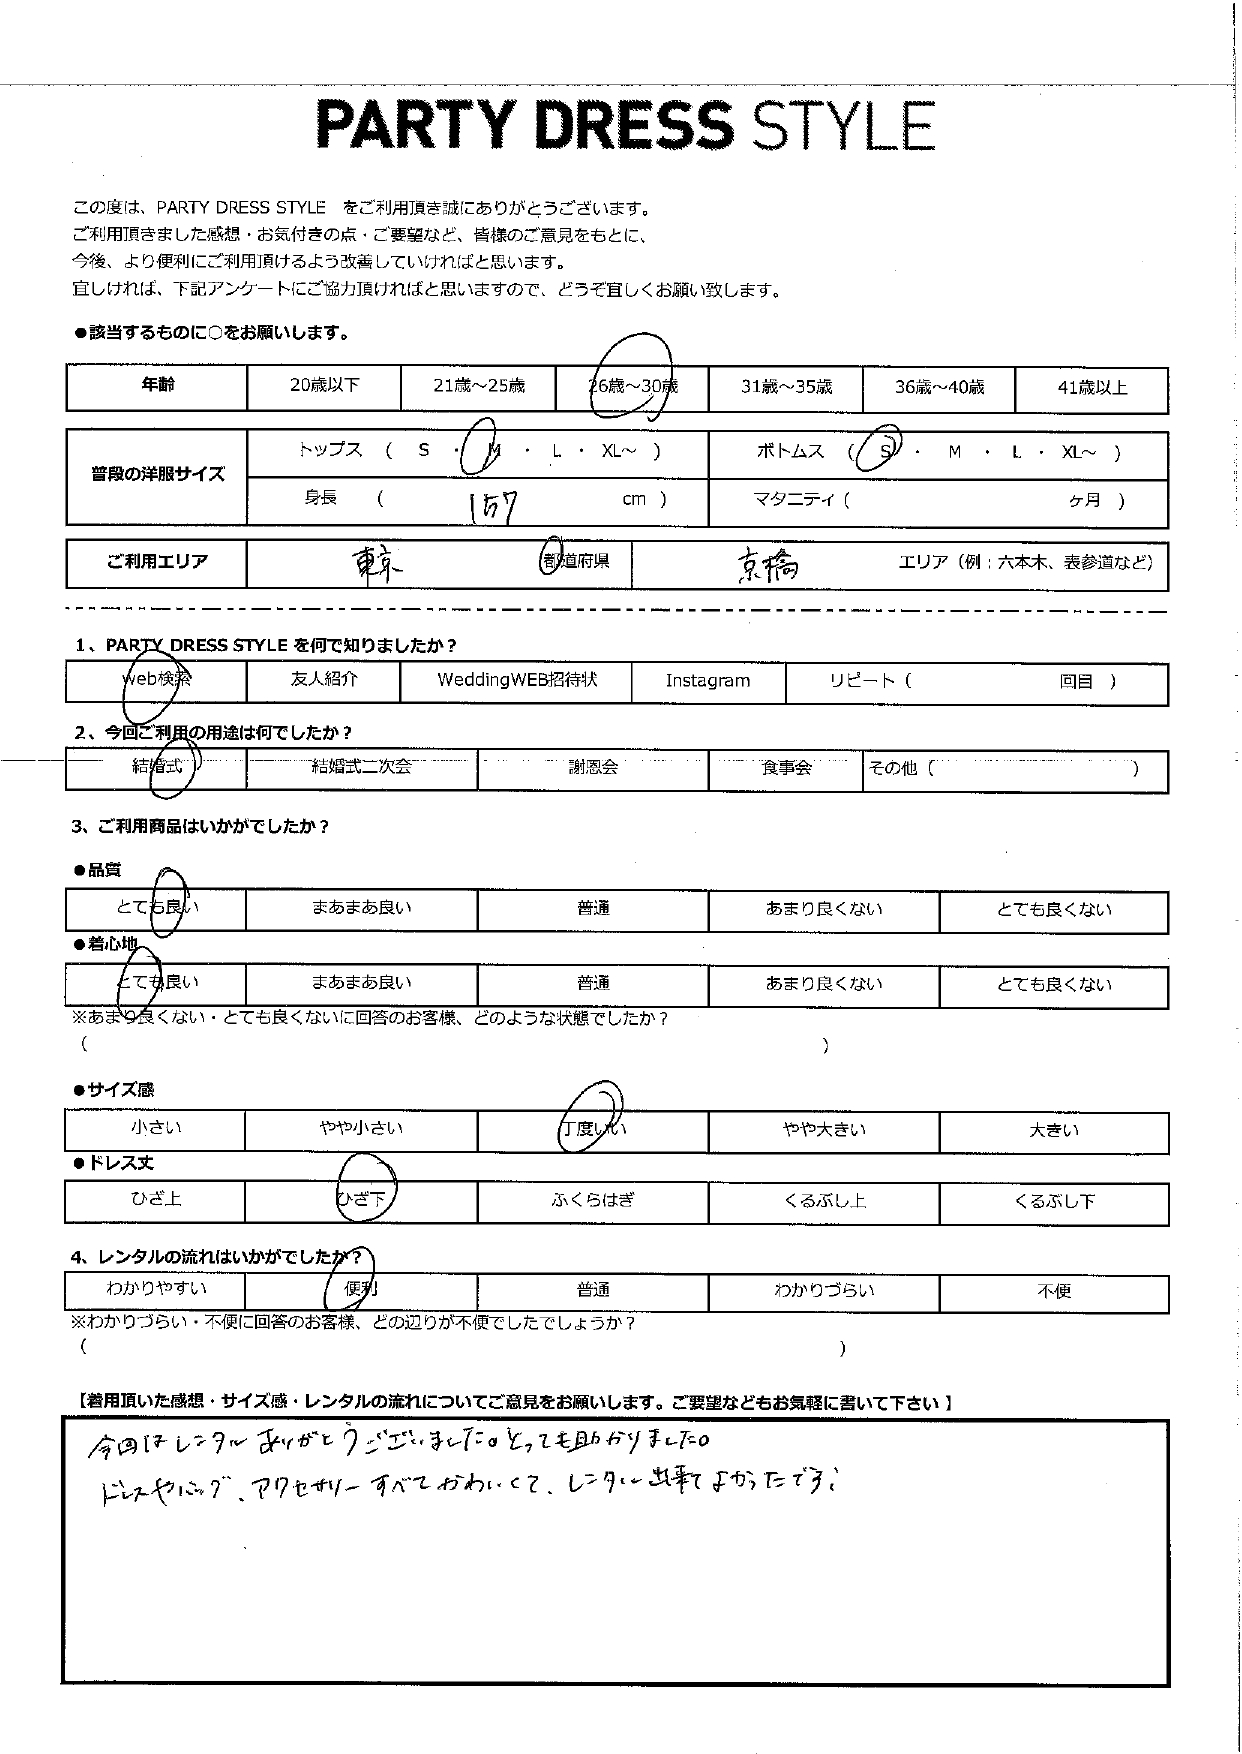 PARTY DRESS STYLE
この度は、PARTY DRESS STYLE をご利用頂き誠にありがとうございます。
ご利用頂きました感想・お気付きの点・ご要望など、皆様のご意見をもとに、
今後、より便利にご利用頂けるよう改善していければと思います。
宜しければ、下記アンケートにご協力頂ければと思いますので、どうぞ宜しくお願い致します。
●該当するものに○をお願いします。
年齢 20歳以下 21歳～25歳 26歳～30歳 31歳～35歳 36歳～40歳 41歳以上
普段の洋服サイズ トップス ( S ・ M ・ L ・ XL～ ) ボトムス ( S ・ M ・ L ・ XL～ )
身長 ( 157 cm ) マタニティ ( ヶ月 )
ご利用エリア 東京 都道府県 京橋 エリア（例：六本木、表参道など）
1、PARTY DRESS STYLE を何で知りましたか？
web検索 友人紹介 WeddingWEB招待状 Instagram リピート ( 回目 )
2、今回ご利用の用途は何でしたか？
結婚式 結婚式二次会 謝恩会 食事会 その他 ( )
3、ご利用商品はいかがでしたか？
●品質
とても良い まあまあ良い 普通 あまり良くない とても良くない
●着心地
とても良い まあまあ良い 普通 あまり良くない とても良くない
※あまり良くない・とても良くないに回答のお客様、どのような状態でしたか？
( )
●サイズ感
小さい やや小さい 丁度いい やや大きい 大きい
●ドレス丈
ひざ上 ひざ下 ふくらはぎ くるぶし上 くるぶし下
4、レンタルの流れはいかがでしたか？
わかりやすい 便利 普通 わかりづらい 不便
※わかりづらい・不便に回答のお客様、どの辺りが不便でしたでしょうか？
( )
【着用頂いた感想・サイズ感・レンタルの流れについてご意見をお願いします。ご要望などもお気軽に書いて下さい】
今回はレンタルありがとうございました。とっても助かりました。
ドレスやバッグ、アクセサリーすべてかわいくて、レンタル出来てよかったです！